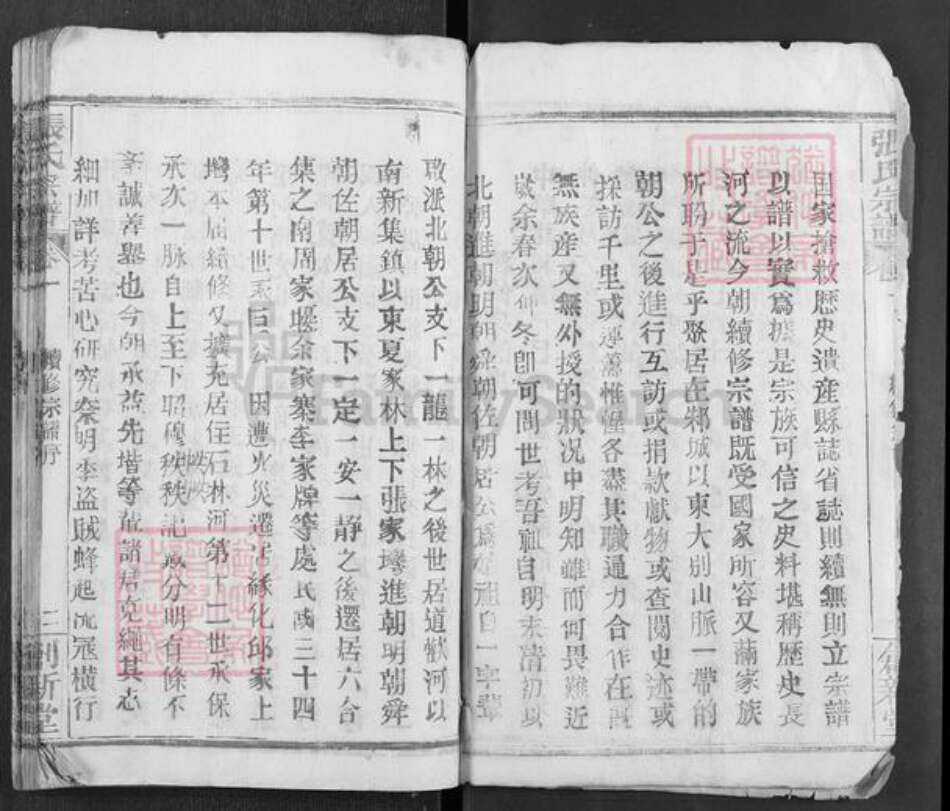 張氏宗譜
國家搶救歷史遺産縣誌省誌則續無則立宗譜
以譜以實爲據是宗族可信之史料堪稱歷史長
河之流今朝續修宗譜既受國家所容又蒲家族
所盼于是乎聚居在邾城以東大別山脈一帶的
朝公之後進行互訪或捐款献物或查閱史迹或
採訪千里或運籌惟幄各盡其職通力合作在既
無族産又無外授的狀况中明知難而何畏難近
歲余春次仰冬卽可問世考吾祖自明末清初以
北朝進朝明朝舜朝佐朝居公爲始祖自一字輩
啟派北朝公支下一龍一林之後世居道歡河以
南新集鎮以東夏家林上下張家塆進朝明朝舜
朝佐朝居公支下一定一安一静之後遷居六合
集之南周家堰余家寨李家牌等處民國三十四
年第十世 公因遭火災遷居緣化邱家上
塆本屆續修又擴充居住石林河第十二世承保
承次一脉自上至下昭穆秩秩記載分明有條不
紊誠善舉也今朝承益先堦等依諸居克繩其志
細加詳考苦心研究奈明季盗賊蜂起流寇橫行
張氏宗譜
卷一
續修宗譜序
三
創新堂
FamilySearch